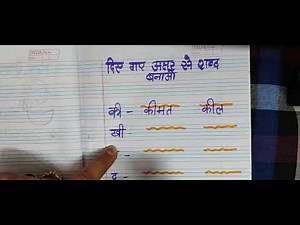 दिए गए अक्षर से शब्द
बनाओ
की - कीमत कील
खी -
-
द -